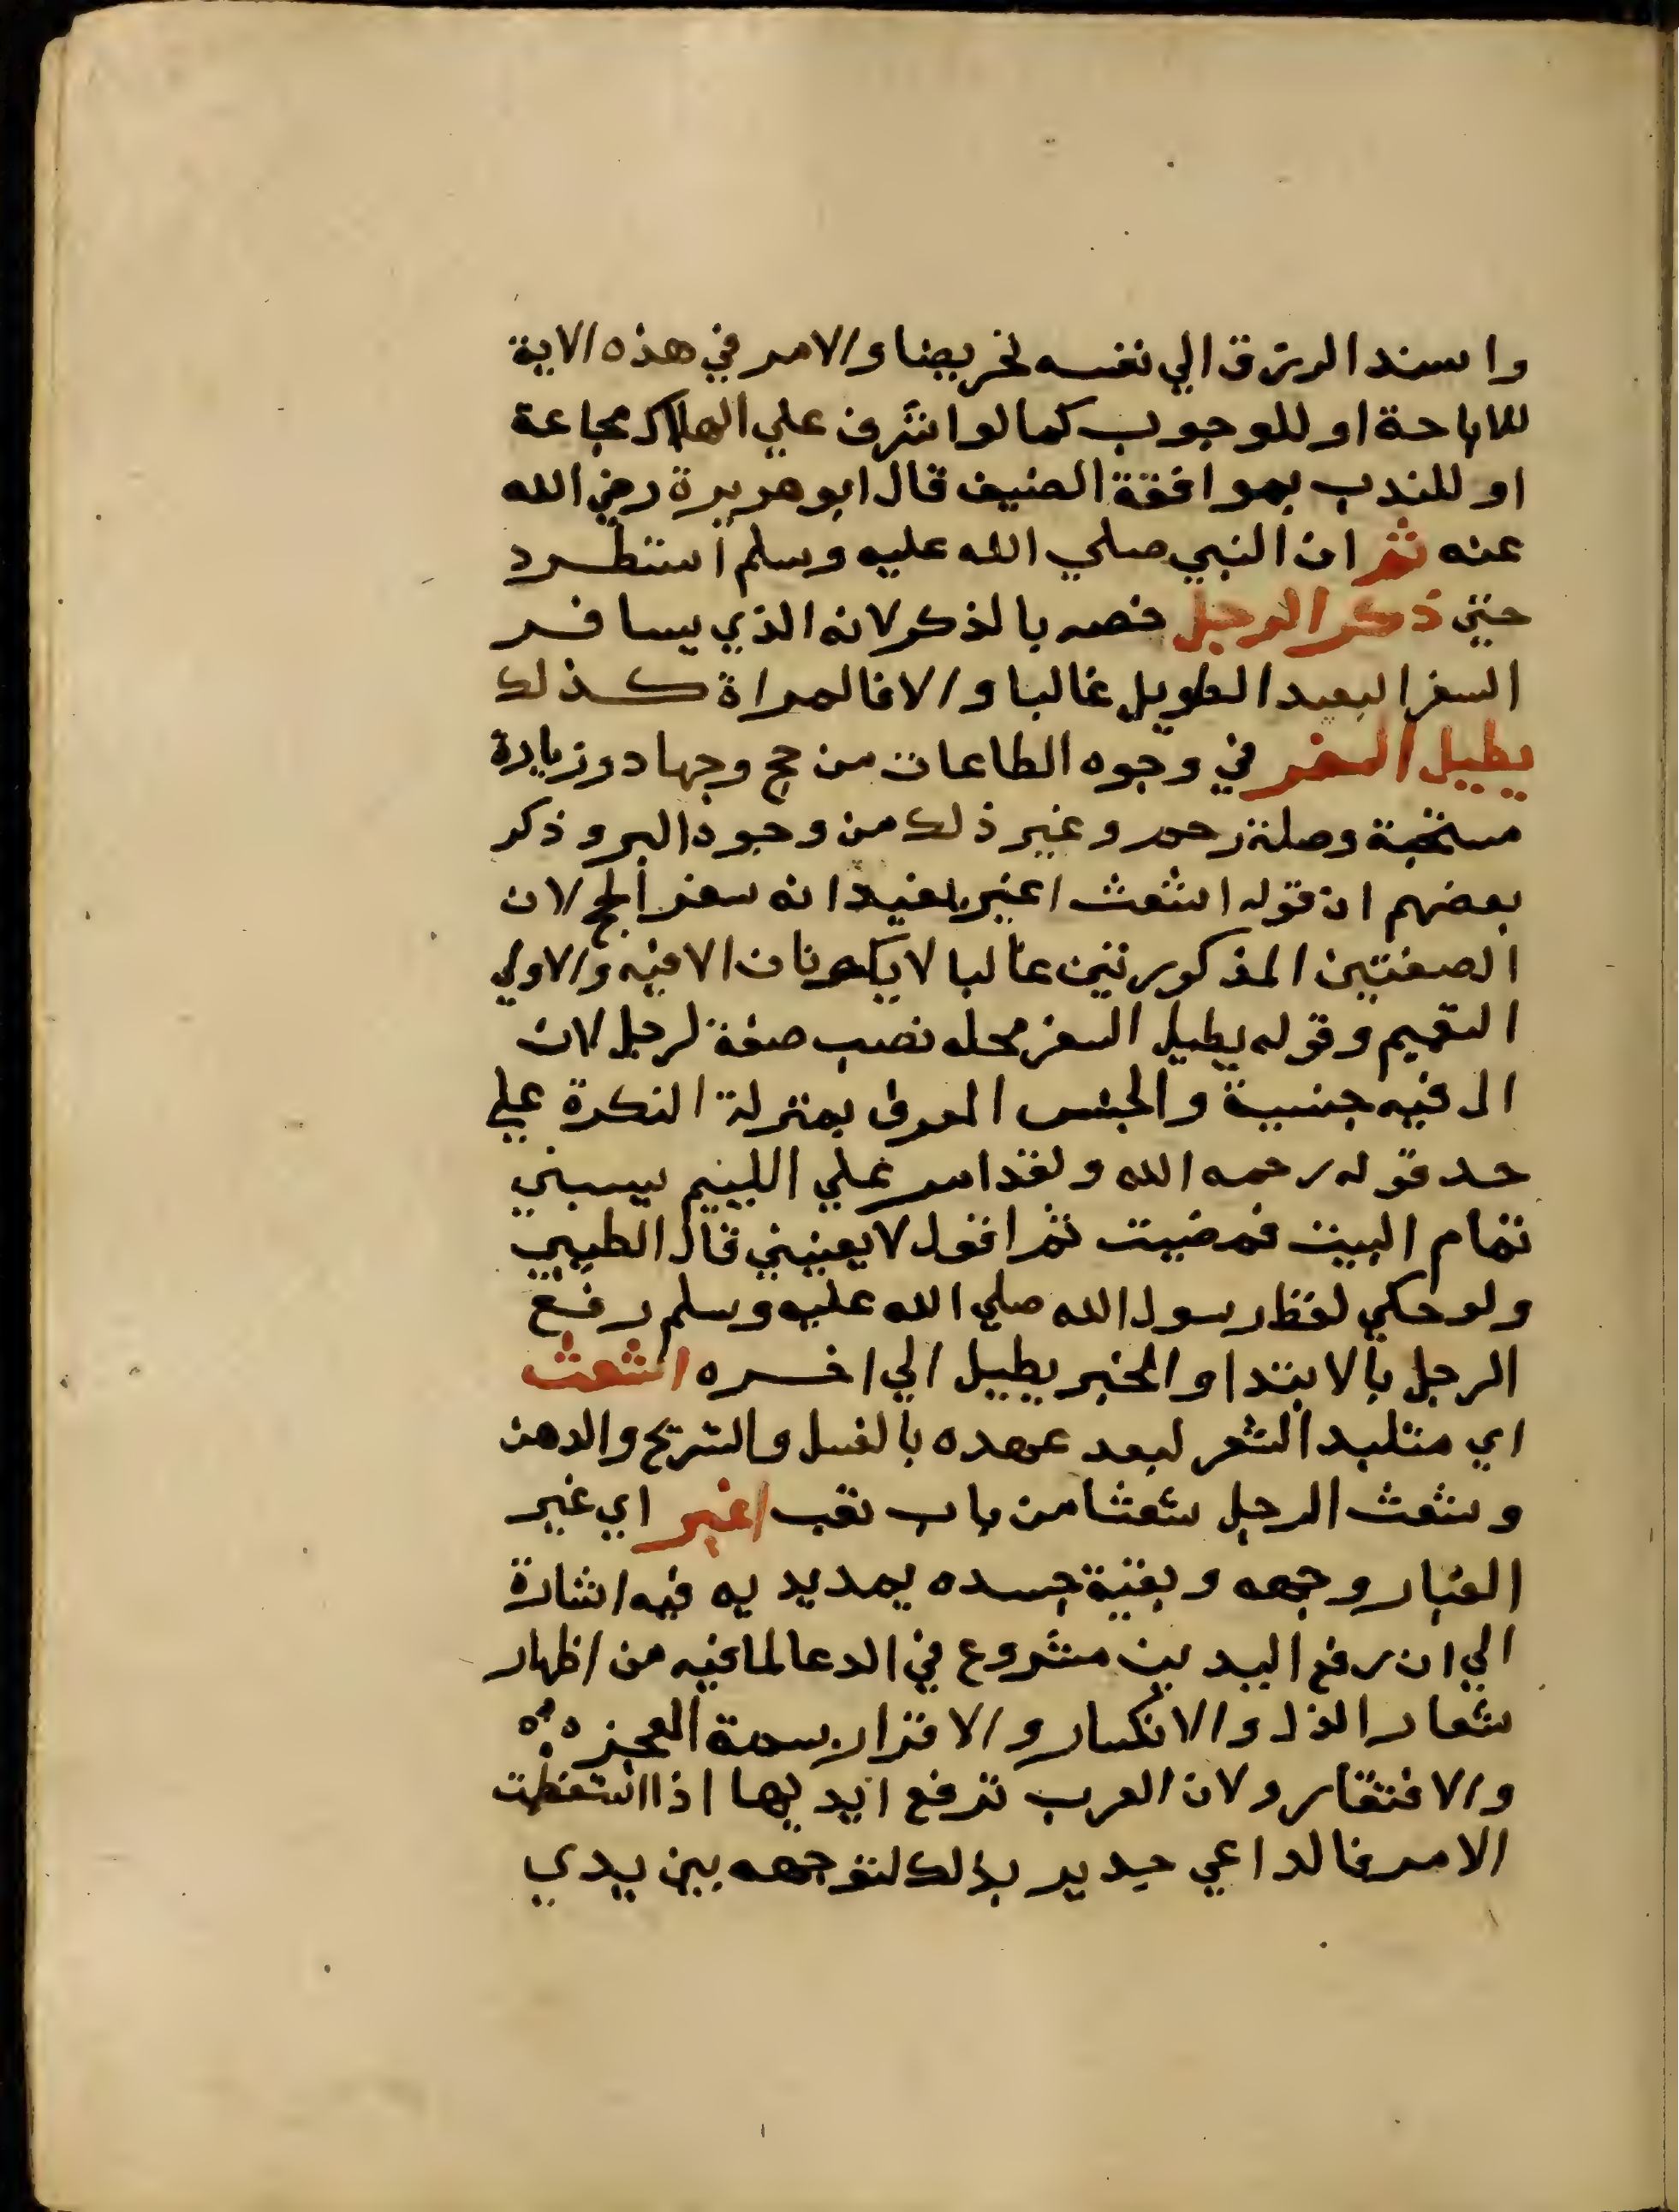 واسند الرزق الي نفسه تحريضا والامر في هذه الاية
للاباحة او للوجوب كما لو اشرف علي الهلاك مجاعة
او للندب بموافقة الضيف قال ابو هريرة رضي الله
عنه ثم ان النبي صلي الله عليه وسلم استطرد
حتي ذكر الرجل خصه بالذكر لانه الذي يسافر
السفر البعيد الطويل غالبا والا فالمراة كذلك
يطيل السفر في وجوه الطاعات من حج وجهاد وزيارة
مستحبة وصلة رحم وغير ذلك من وجوه البر وذكر
بعضهم ان قوله اشعث اغبر يفيد انه سفر الحج لان
الصفتين المذكورتين غالبا لا يكونان الا فيه والاولي
التعميم وقوله يطيل السفر محله نصب صفة لرجل لان
ال فيه جنسية والجنس المعرف بمنزلة النكرة علي
حد قوله رحمه الله ولقد امر علي اللييم يسبني
تمام البيت فمضيت ثم اقول لا يعنيني قال الطيبي
ولو حكي لفظ رسول الله صلي الله عليه وسلم رفع
الرجل بالابتدا والخبر يطيل الي اخره اشعث
اي متلبد الشعر لبعد عهده بالغسل والتسريح والدهن
وشعث الرجل شعثا من باب تعب اغبر اي غير
الغبار وجهه وبقية جسده يمد يديه فيه اشارة
الي ان رفع اليدين مشروع في الدعا لما فيه من اظهار
شعار الذل والانكسار والاقرار بسمة العجز
والافتقار ولان العرب ترفع ايديها اذا استعظمت
الامر فالداعي جدير بذلك لتوجهه بين يدي